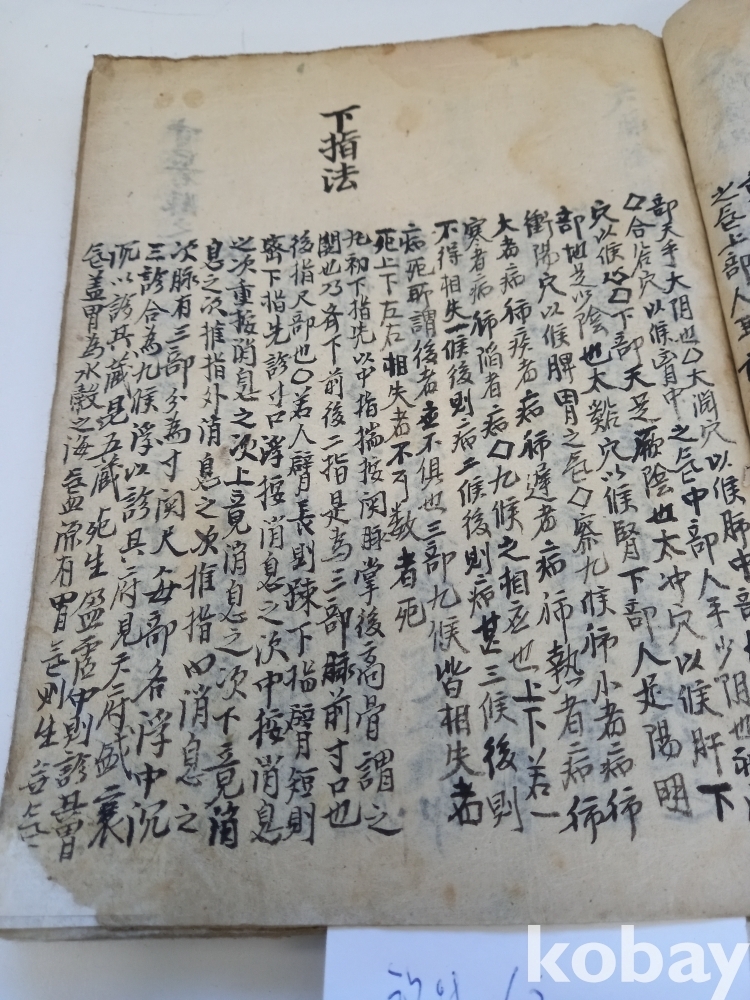 之气上部人
部天手大阴也〇大渊穴以候肺中部
〇合谷穴以候胷中之气中部人手少阴也神
穴以候心〇下部天足厥陰也太冲穴以候肝下
部地足以陰也太谿穴以候腎下部人足陽明
衝陽穴以候脾胃之气〇察九候独小者病独
大者病独疾者病独遲者病独熱者病独
寒者病独陷者病〇九候之相应也上下若一
不得相失一候後則病二候後則病甚三候後則
病死所謂後者应不俱也三部九候皆相失者
死上下左右相失者不可数者死
下指法
凡初下指先以中指揣按関脉掌後高骨謂之
関也乃斉下前後二指是為三部脉前寸口也
後指尺部也〇若人臂長則踈下指臂短則
密下指先診寸口浮按消息之次中按消息
之次重按消息之次上竟消息之次下竟消
息之次推指外消息之次推指内消息之
次脉有三部分為寸関尺每部各浮中沉
三診合為九候浮以診其府見六府盛衰
沉以診其藏見五藏死生盈虚中則診其胃
气盖胃為水穀之海有胃气則生
kobay